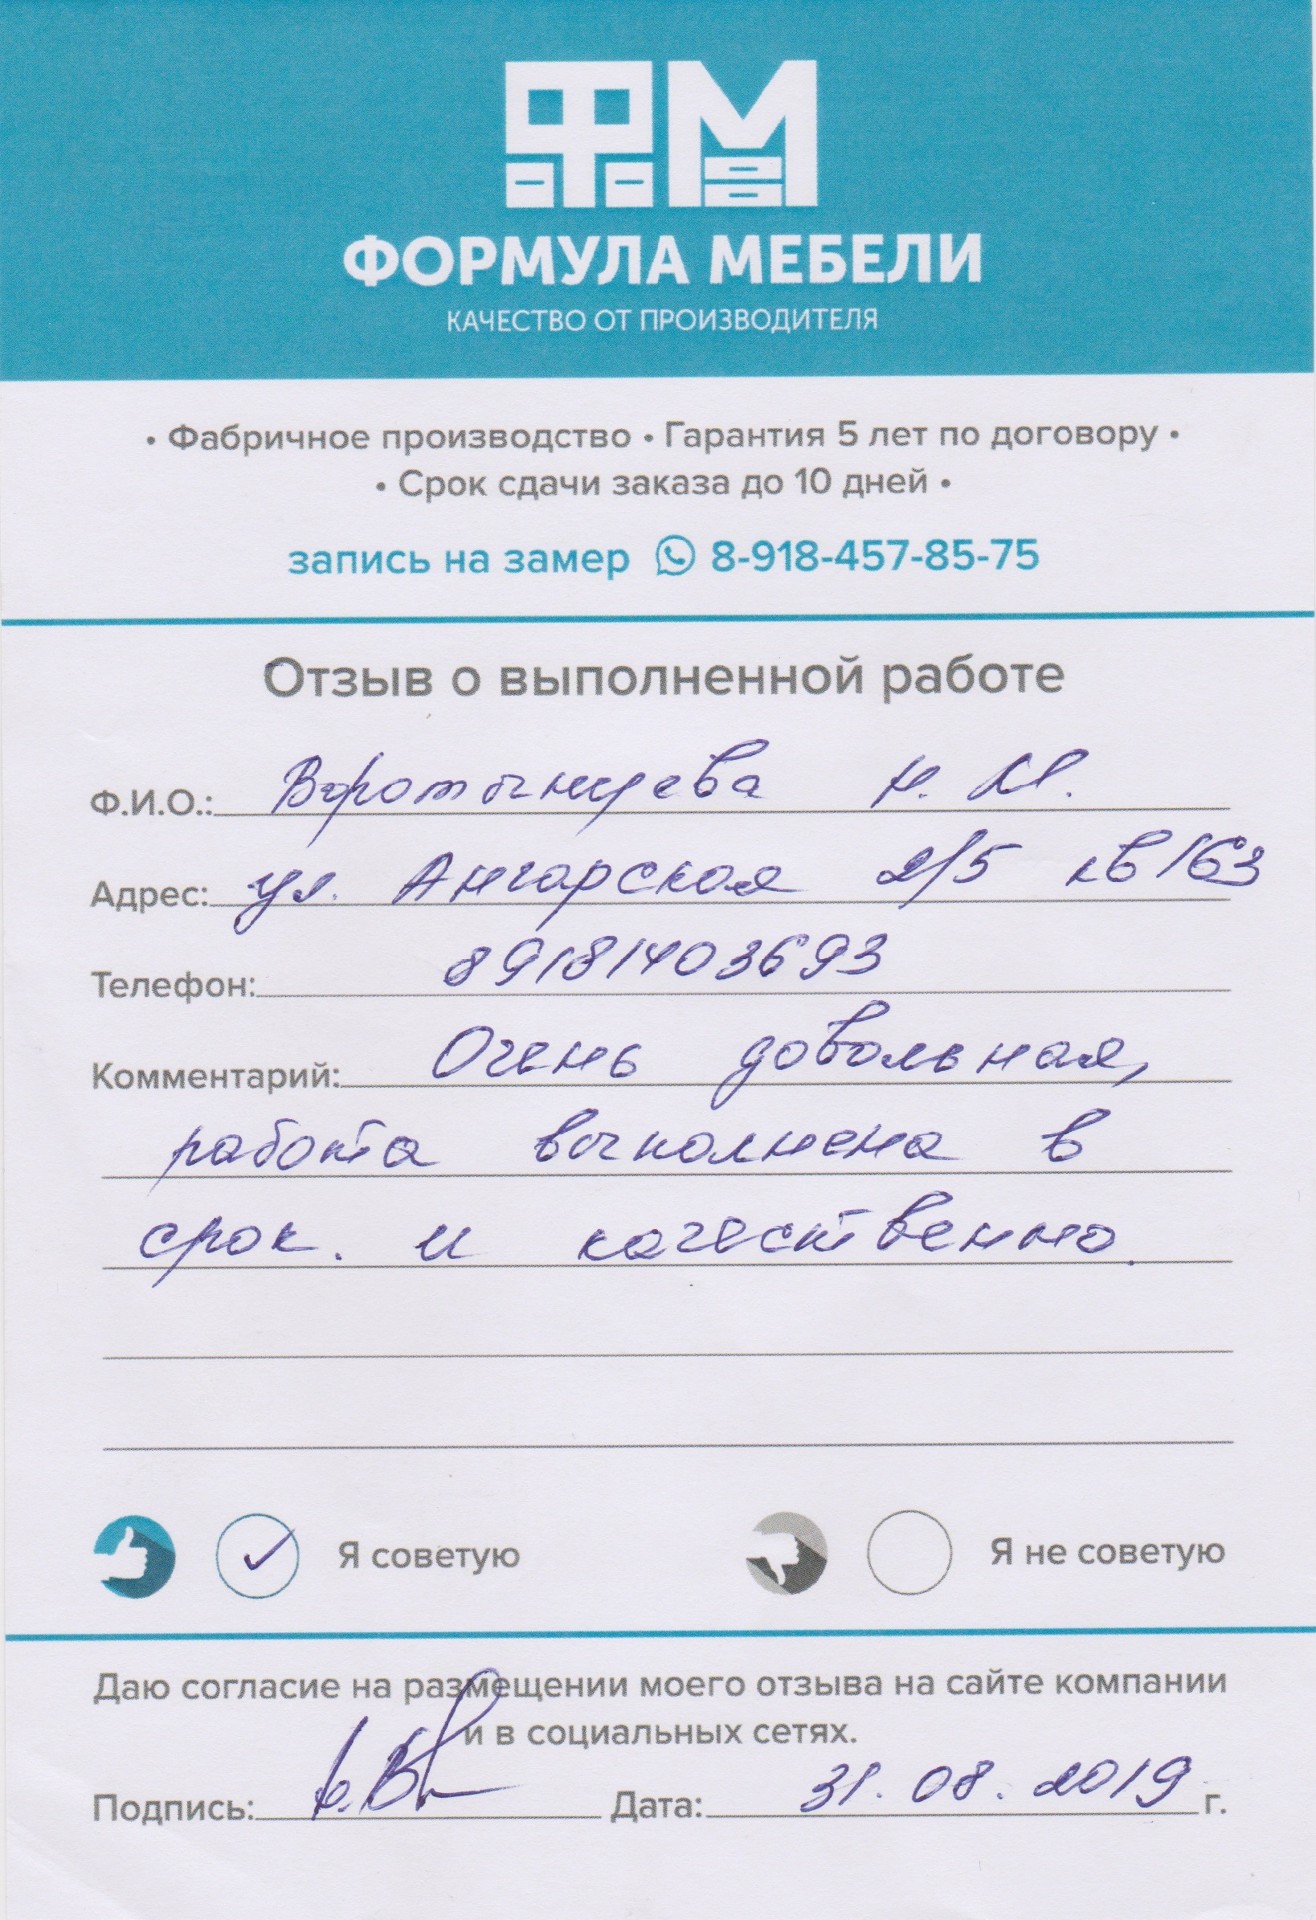 ФМ
ФОРМУЛА МЕБЕЛИ
КАЧЕСТВО ОТ ПРОИЗВОДИТЕЛЯ
• Фабричное производство • Гарантия 5 лет по договору •
• Срок сдачи заказа до 10 дней •
запись на замер 8-918-457-85-75
Отзыв о выполненной работе
Ф.И.О.: Воротынцева Н. М.
Адрес: ул. Ангарская 2/5 кв 163
Телефон: 89181403693
Комментарий: Очень довольная,
работа выполнена в
срок. и качественно.
Я советую Я не советую
Даю согласие на размещении моего отзыва на сайте компании
и в социальных сетях.
Подпись: Дата: 31.08.2019 г.